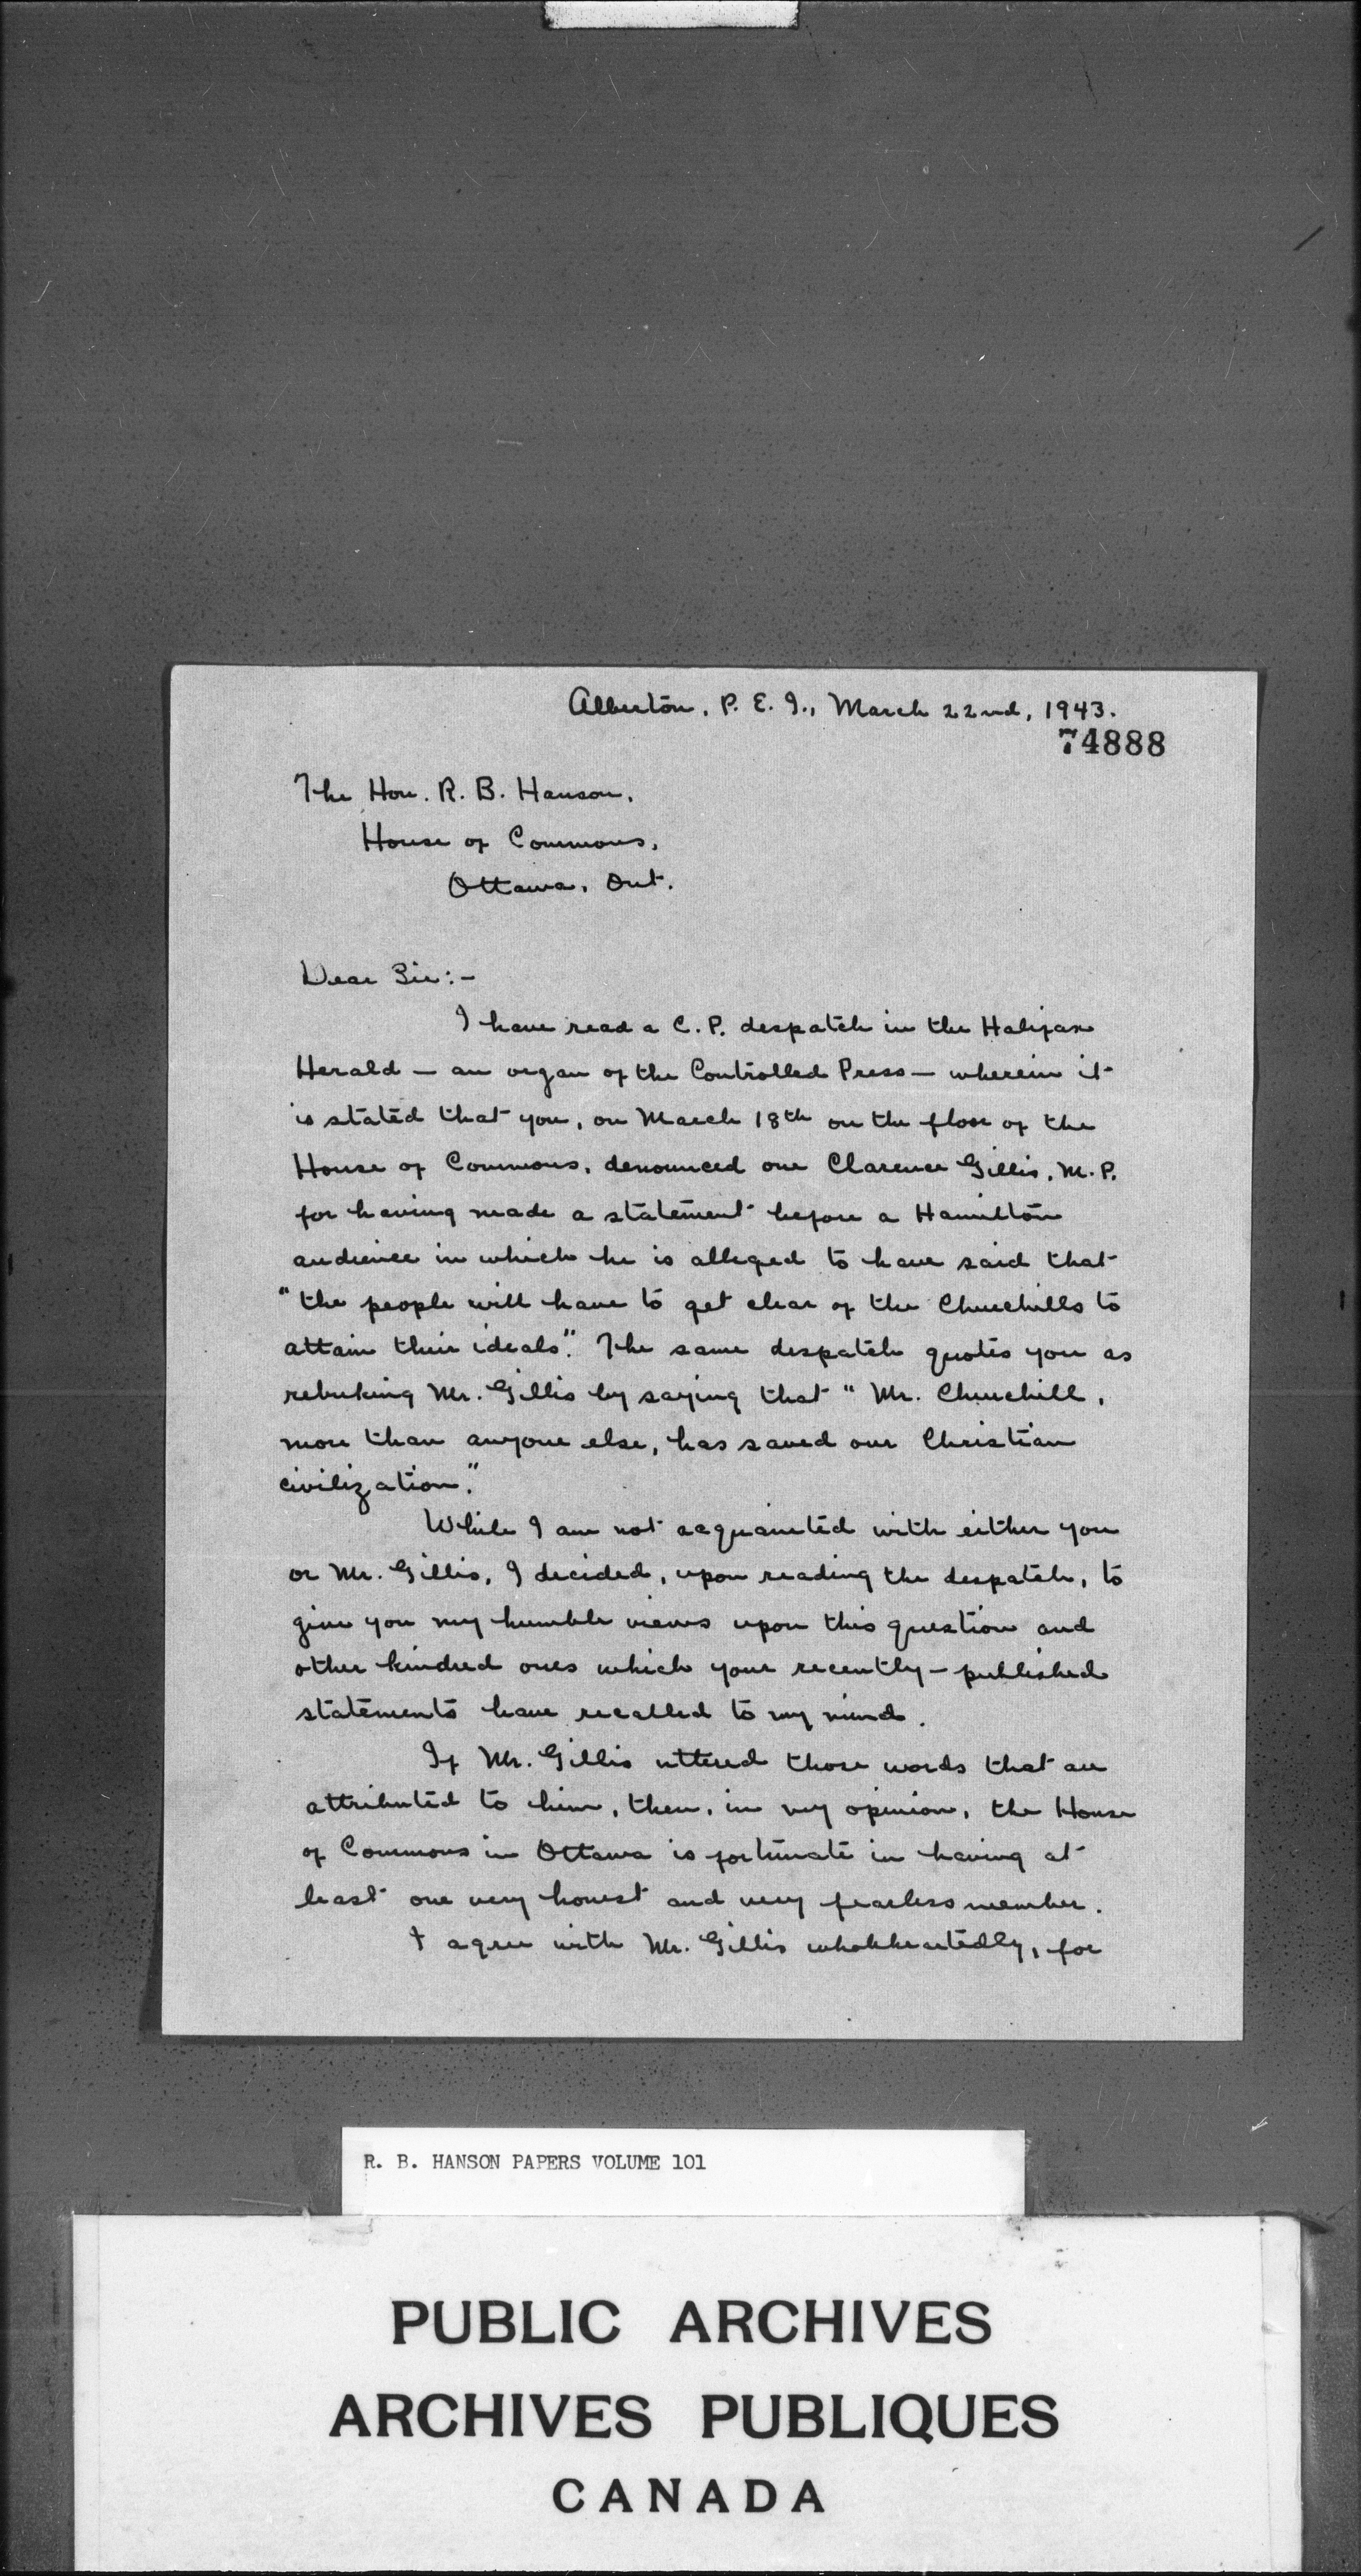 Alberton, P. E. I., March 22nd, 1943.
74888
The Hon. R. B. Hanson,
House of Commons,
Ottawa, Ont.
Dear Sir:-
I have read a C. P. despatch in the Halifax
Herald - an organ of the Controlled Press - wherein it
is stated that you, on March 18th on the floor of the
House of Commons, denounced one Clarence Gillis, M. P.
for having made a statement before a Hamilton
audience in which he is alleged to have said that
"the people will have to get clear of the Churchills to
attain their ideals". The same despatch quotes you as
rebuking Mr. Gillis by saying that "Mr. Churchill,
more than anyone else, has saved our Christian
civilization".
While I am not acquainted with either you
or Mr. Gillis, I decided, upon reading the despatch, to
give you my humble views upon this question and
other kindred ones which your recently-published
statements have recalled to my mind.
If Mr. Gillis uttered those words that are
attributed to him, then, in my opinion, the House
of Commons in Ottawa is fortunate in having at
least one very honest and very fearless member.
I agree with Mr. Gillis wholeheartedly, for
R. B. HANSON PAPERS VOLUME 101
PUBLIC ARCHIVES
ARCHIVES PUBLIQUES
CANADA